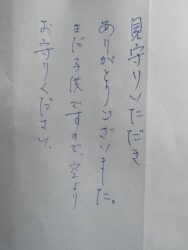 見守りいただき
ありがとうございました。
まだ子供ですので、空より
お守りください。